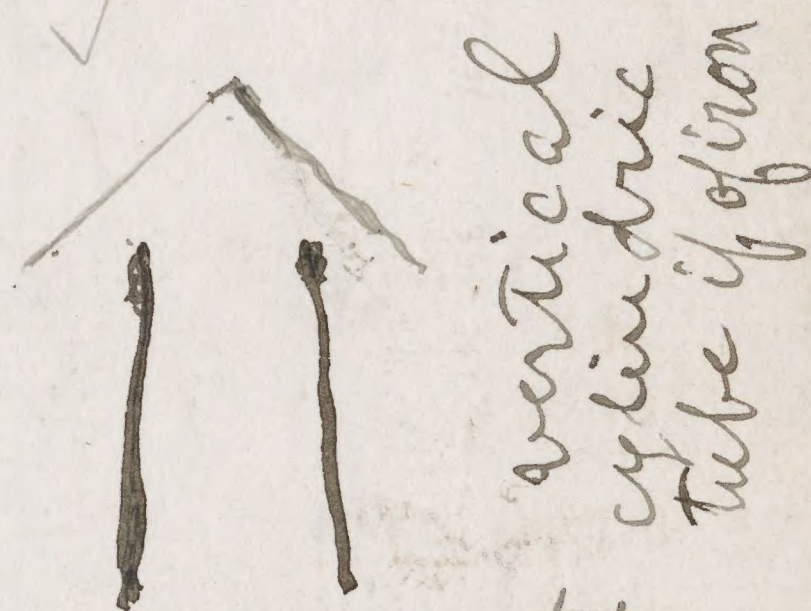 vertical
cylindric
tube if of iron